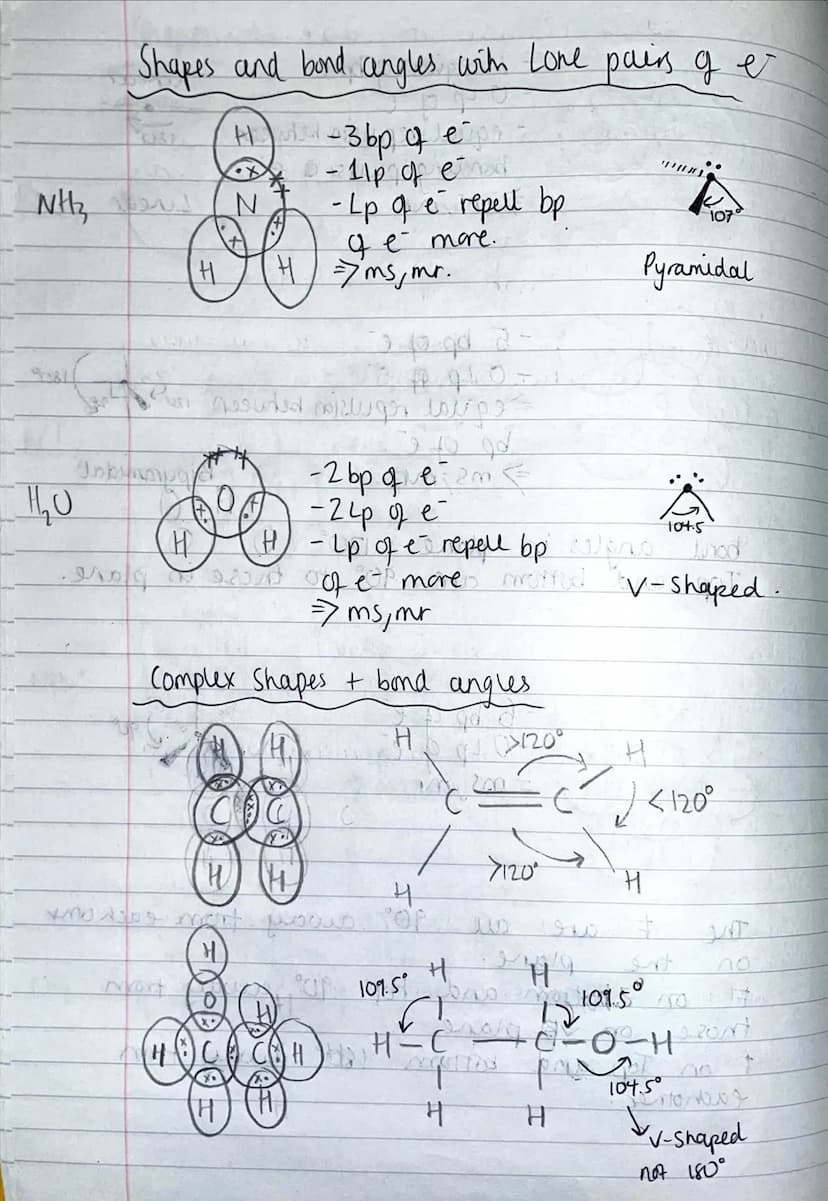 Shapes and bond angles with Lone pairs of e⁻
NH₃
H
N
H H
-3bp of e⁻
- 1lp of e⁻
-Lp of e⁻ repell bp
of e⁻ more.
⇒ ms, mr.
107°
Pyramidal
H₂O
O
H H
-2bp of e⁻
-2Lp of e⁻
- Lp of e⁻ repell bp
of e⁻ more
⇒ ms, mr
104.5
V-shaped.
Complex Shapes + bond angles
H H
C C
H H
H >120° H
C = C <120°
>120°
H H
H
O H
H C C H
H H
109.5° H H 109.5°
H-C-C-O-H
104.5°
H H
V-shaped
not 180°